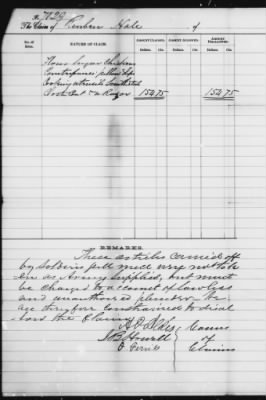 No. 7829
The Claim of Reuben Hale of
No. of Item. NATURE OF CLAIM. AMOUNT CLAIMED. AMOUNT ALLOWED. AMOUNT DISALLOWED.
Dollars. Cts. Dollars. Cts. Dollars. Cts.
Flour Sugar Chickens
Counterpanes pillow slips
Cooking utensils
Coat & Razor 154 75 154 75
REMARKS.
These articles carried off
by soldiers were not taken
as Army supplies, but must
be charged to account of lawless
and unauthorized plunder. We
are therefore constrained to disal-
low the Claim
A O Aldis
J B Howell
O. Ferriss
Comrs
of
Claims